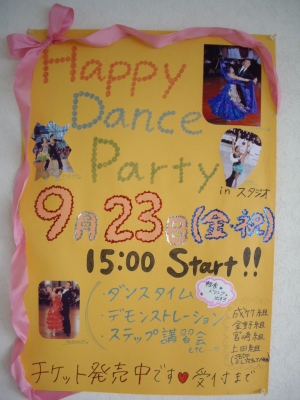 Happy
Dance
Party
in スタジオ
9月23日(金・祝)
15:00 Start!!
・ダンスタイム
・デモンストレーション
・ステップ講習会
成竹組
金野組
宮崎組
上田組
チケット発売中です♥受付まで